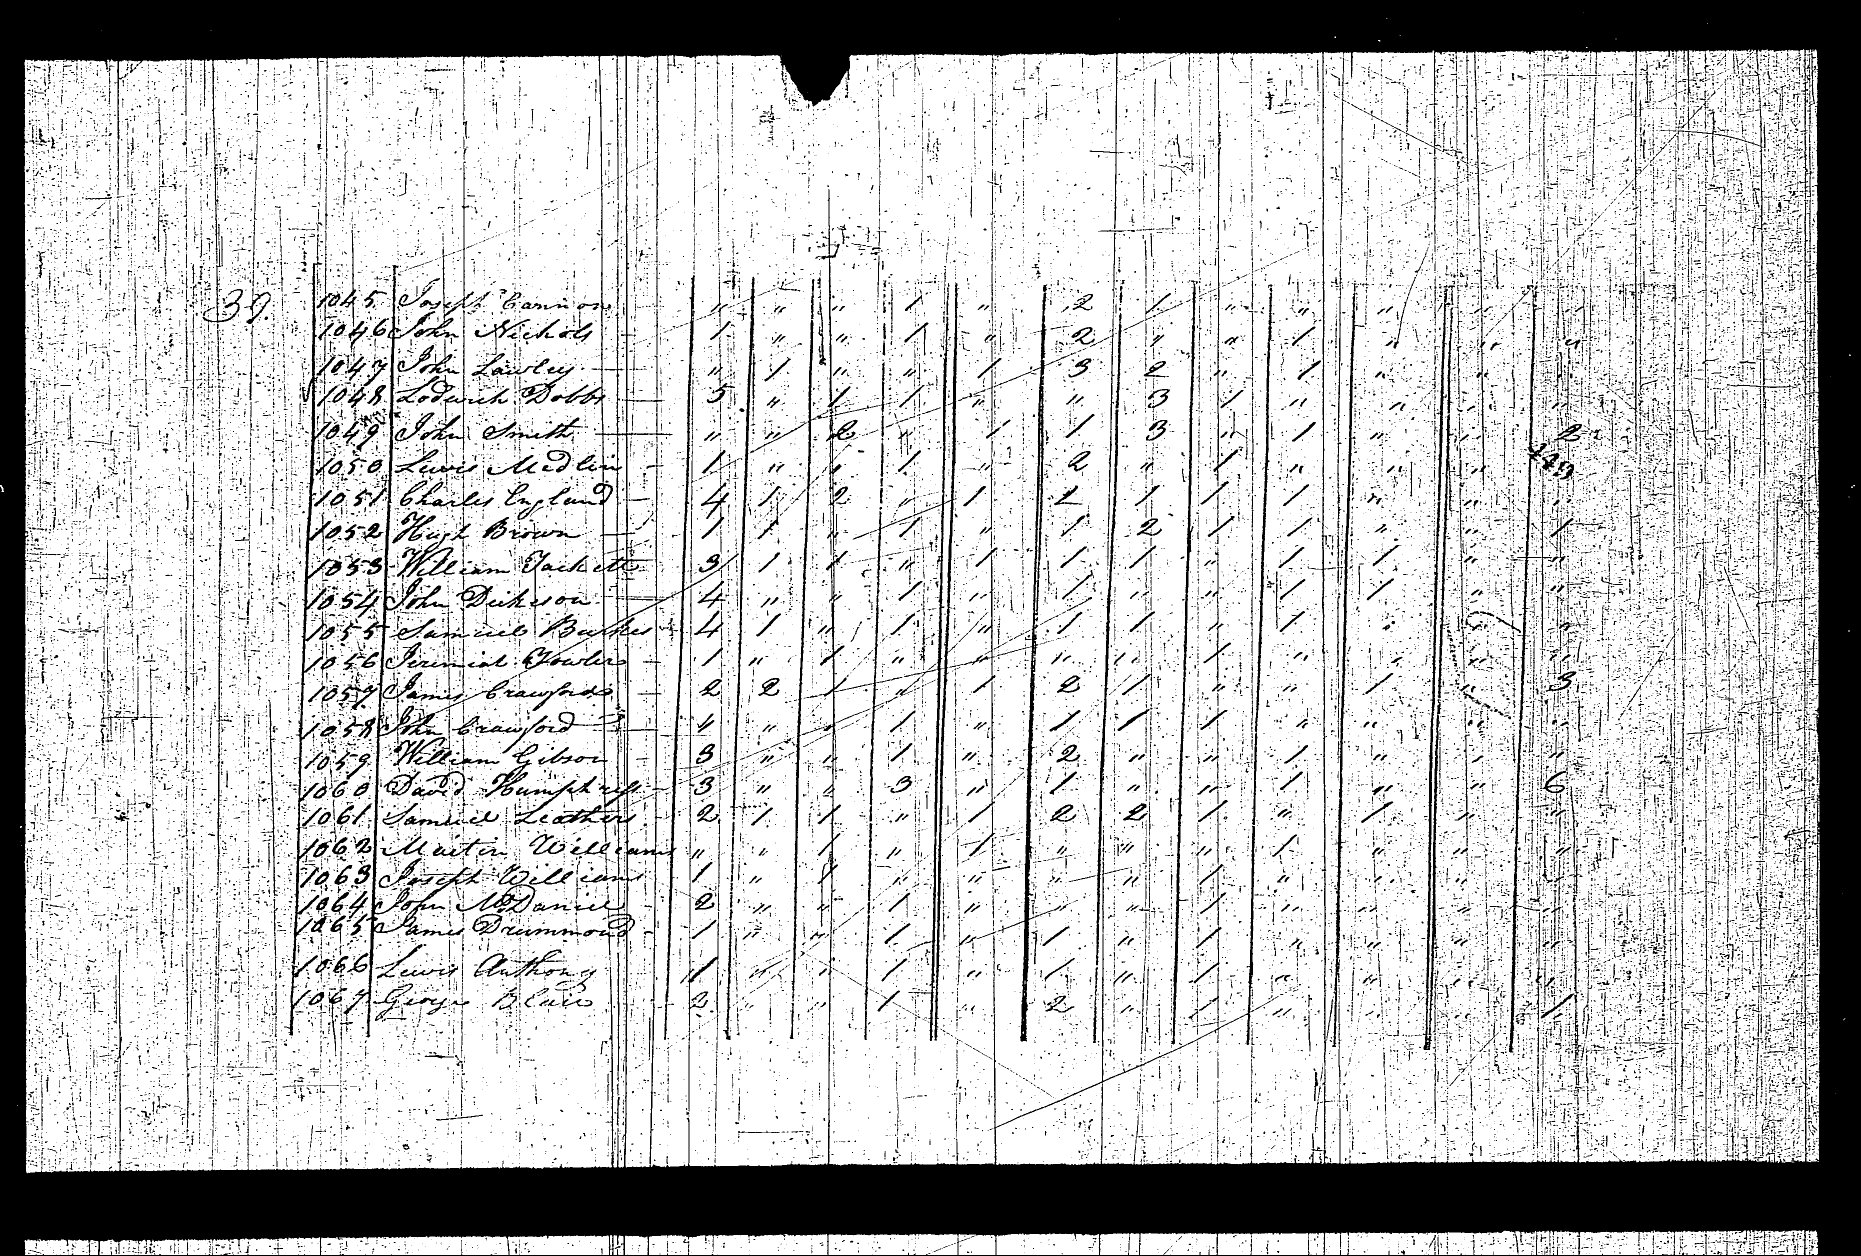 39. 1045 Joseph Cannon " " " 1 " 2 1 " " " " "
1046 John Nichols — 1 " " 1 " 2 " " 1 " " "
1047 John Lawley — " 1 " " 1 3 2 " 1 " " "
1048 Lodwick Dobbs — 5 " 1 1 " " 3 1 " " " "
1049 John Smith — " " 2 " 1 1 3 " 1 " " 2
1050 Lewis Medlin — 1 " " 1 " 2 " 1 " " "
1051 Charles England — 4 1 2 " 1 1 1 1 1 " " "
1052 Hugh Brown — 1 1 " 1 " 1 2 1 1 " " 1
1053 William Tackett 3 1 1 " 1 1 1 " 1 1 " "
1054 John Dickeson — 4 " " 1 " 1 " " 1 1 " "
1055 Samuel 4 1 " 1 " 1 1 " 1 " " "
1056 Jeremiah Fowlers — 1 " 1 " " " " 1 " " " "
1057 James Crawford — 2 2 1 " 1 2 1 " " 1 " 3
1058 John Crawford — 4 " " 1 " 1 1 1 " " " "
1059 William Gibson — 3 " " 1 " 2 " " 1 " " "
1060 David Humphress — 3 " " 3 " 1 " " 1 " " 6
1061 Samuel Leathers 2 1 1 " 1 2 2 1 " 1 " "
1062 Martin Williams " " 1 " 1 " " " 1 " " "
1063 Joseph Williams 1 " 1 " " " " 1 " " " "
1064 John McDaniel - 2 " " 1 " " " 1 " " " "
1065 James Drummond - 1 " " 1 " 1 " 1 " " " "
1066 Lewis Anthony 1 " " 1 " 1 " 1 " " " "
1067 George Blair 2 " " 1 " 2 " 1 " " " 1